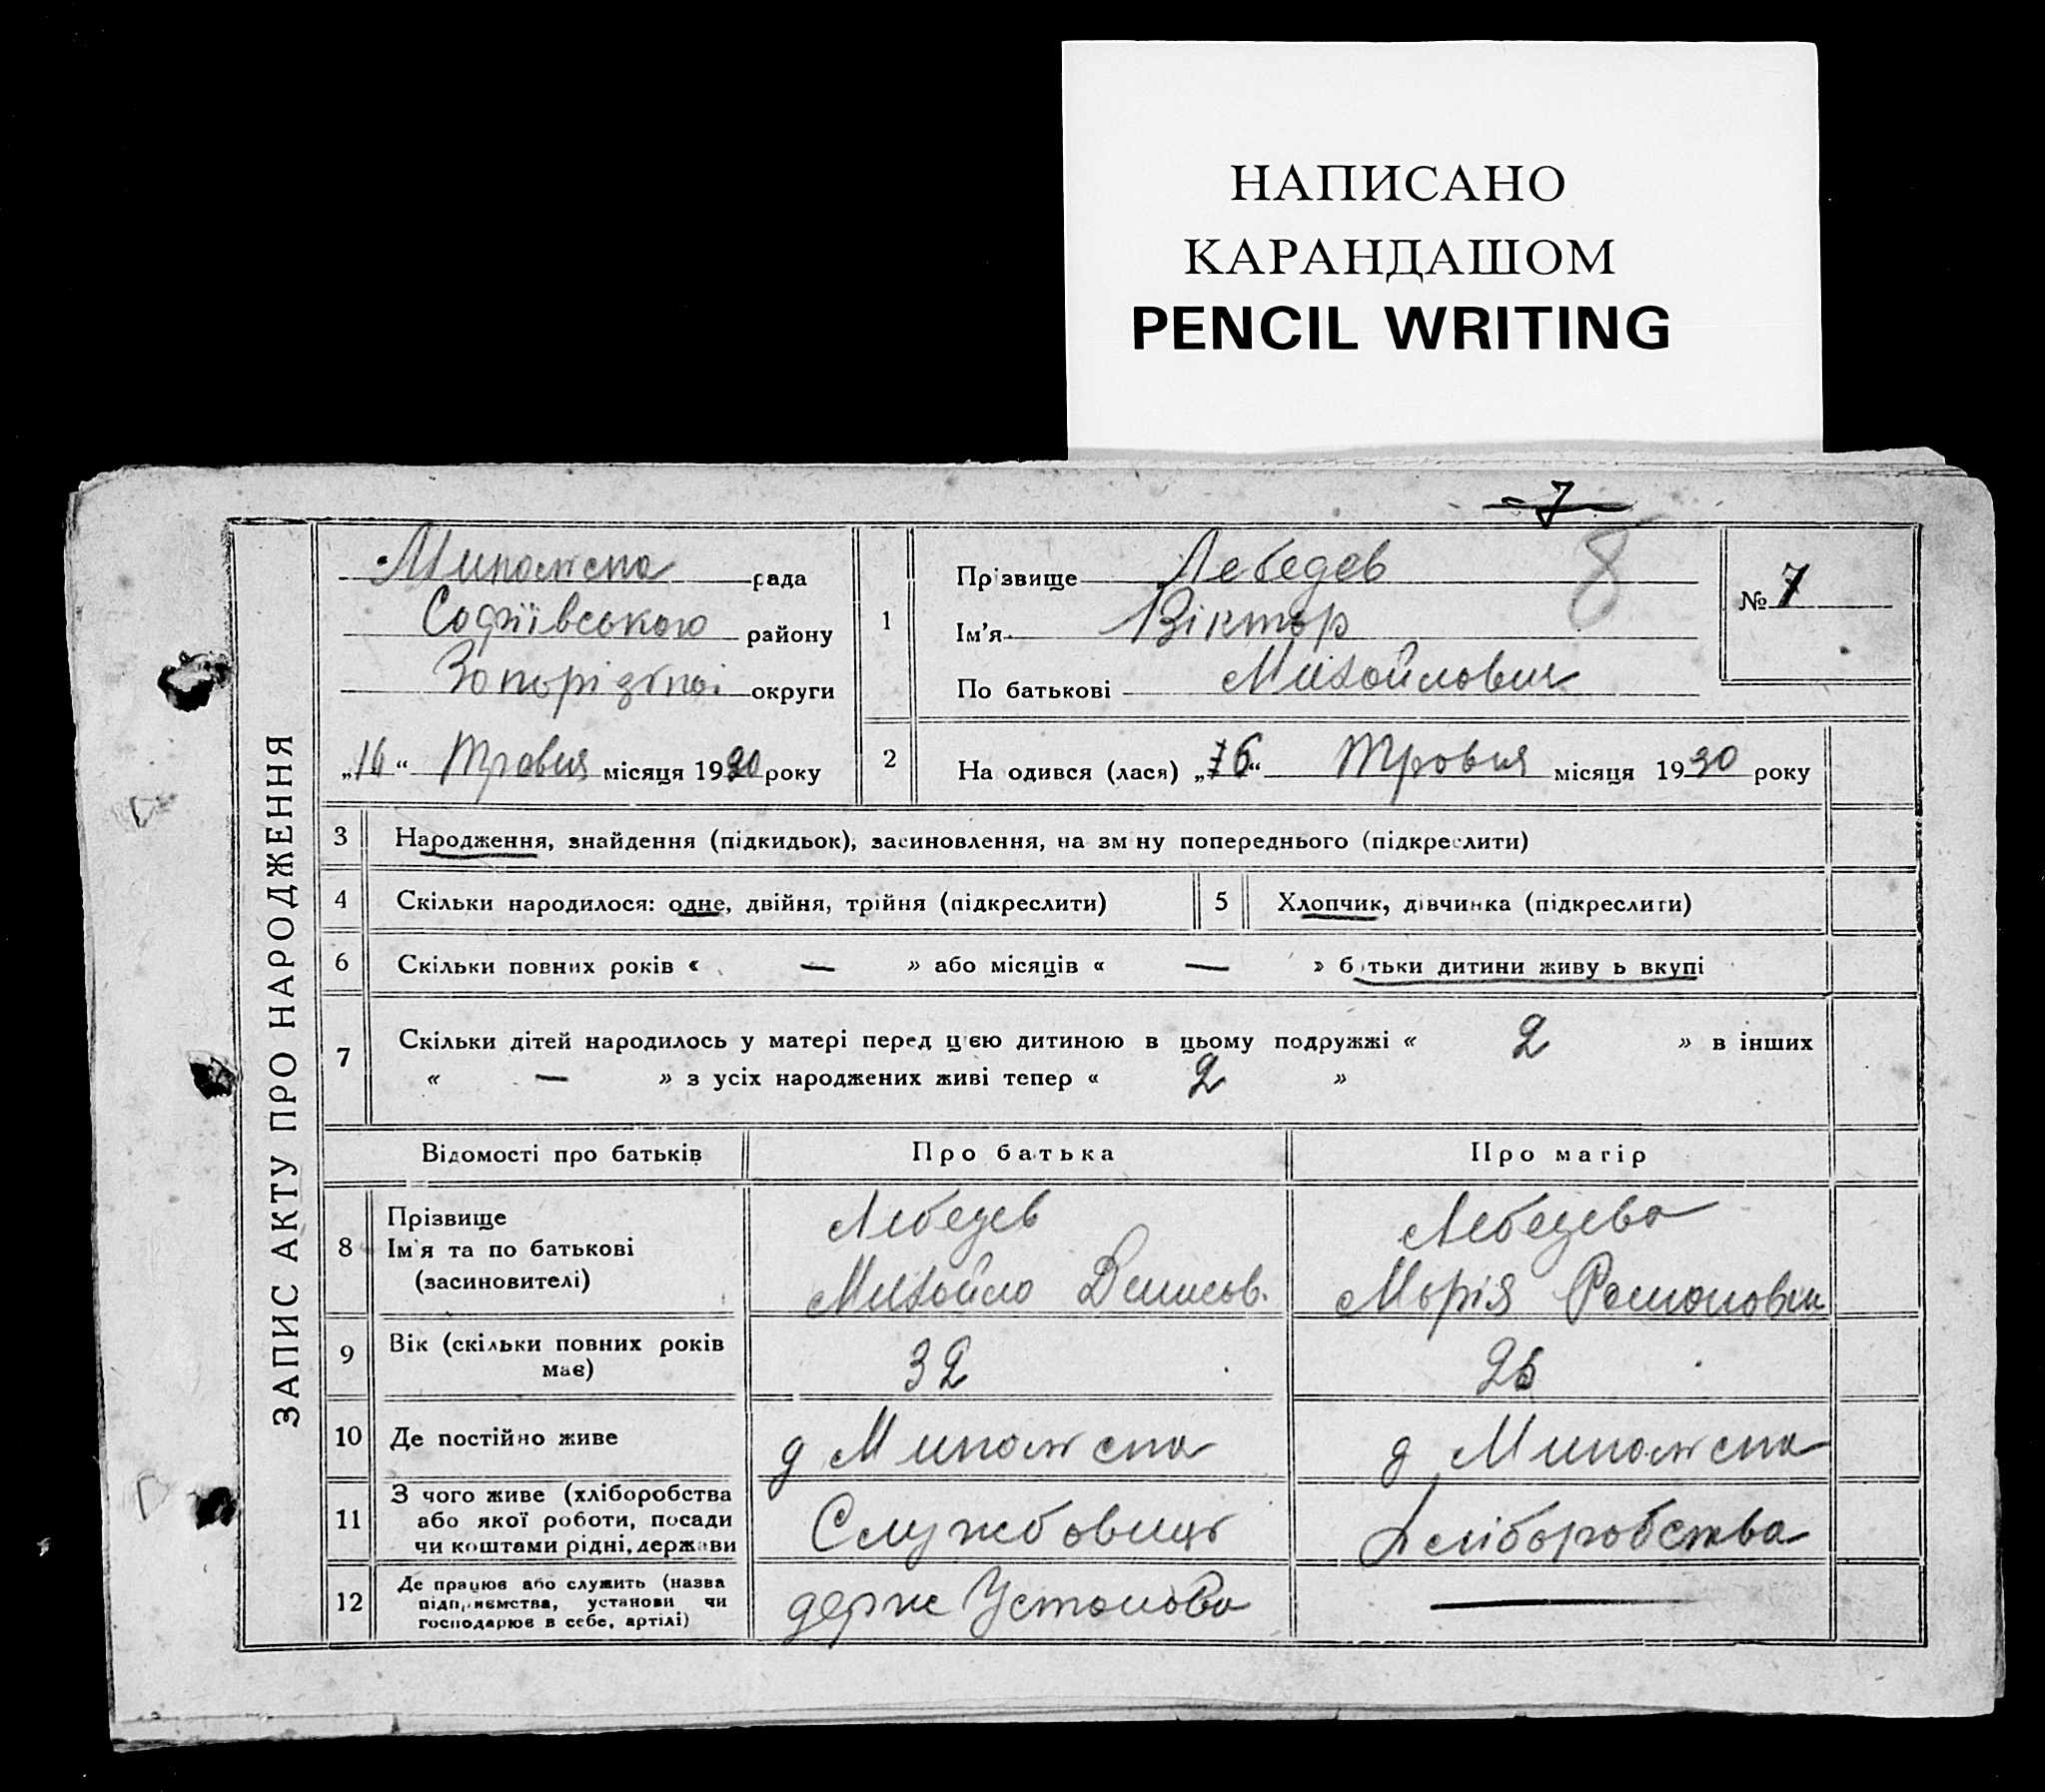 НАПИСАНО
КАРАНДАШОМ
PENCIL WRITING
7
8
ЗАПИС АКТУ ПРО НАРОДЖЕННЯ
рада
Софіївського району
Запорізької округи
„16“ Травня місяця 1930 року
1
Прізвище Лебедєв
Ім'я Віктор
По батькові Михайлович
№ 7
2 На одився (лася) „16“ Травня місяця 1930 року
3 Народження, знайдення (підкидьок), засиновлення, на зм ну попереднього (підкреслити)
4 Скільки народилося: одне, двійня, трійня (підкреслити) 5 Хлопчик, дівчинка (підкреслити)
6 Скільки повних років « — » або місяців « — » б тьки дитини живу ь вкупі
7 Скільки дітей народилось у матері перед цією дитиною в цьому подружжі « 2 » в інших
« — » з усіх народжених живі тепер « 2 »
Відомості про батьків Про батька Про матір
8 Прізвище
Ім'я та по батькові
(засиновителі)
Лебедев
Михайло Денисов.
Лебедева
Марія Романовн
9 Вік (скільки повних років
має)
32
25
10 Де постійно живе
11 З чого живе (хліборобства
або якої роботи, посади
чи коштами рідні, держави
Службовиць
Хліборобства
12 Де працює або служить (назва
підприємства, установи чи
господарює в себе, артілі)
держ Установа
—